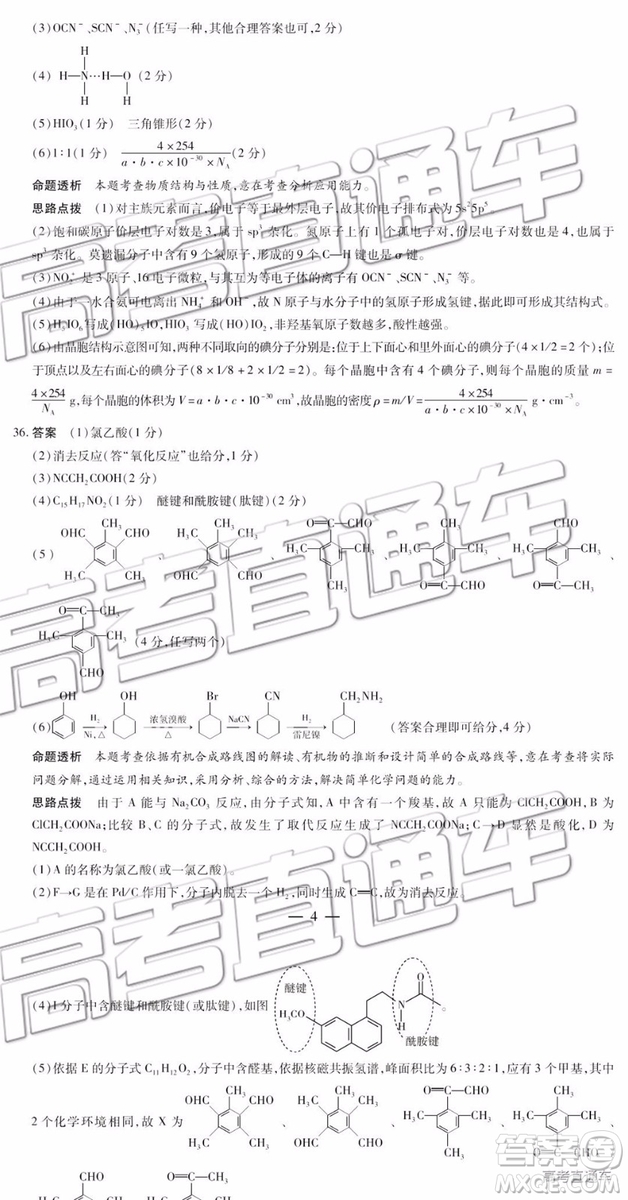 (3)OCN⁻、SCN⁻、N₃⁻(任写一种,其他合理答案也可,2 分)
(4) H—N···H—O (2 分)
H H H
(5)HIO₃(1 分) 三角锥形(2 分)
(6)1:1(1 分) 4×254/(a·b·c×10⁻³⁰×N_A)(2 分)
命题透析 本题考查物质结构与性质,意在考查分析应用能力。
思路点拨 (1)对主族元素而言,价电子等于最外层电子,故其价电子排布式为 5s²5p⁵。
(2)饱和碳原子价层电子对数是 3,属于 sp³ 杂化。氮原子上有 1 个孤电子对,价层电子对数也是 4,也属于
sp³ 杂化。莫遗漏分子中含有 9 个氢原子,形成的 9 个 C—H 键也是 σ 键。
(3)NO₂⁺ 是 3 原子、16 电子微粒,与其互为等电子体的离子有 OCN⁻、SCN⁻、N₃⁻ 等。
(4)由于一水合氨可电离出 NH₄⁺ 和 OH⁻,故 N 原子与水分子中的氢原子形成氢键,据此确定其结构式。
(5)H₅IO₆ 写成(HO)₅IO,HIO₃ 写成(HO)IO₂,非羟基氧原子数越多,酸性越强。
(6)由晶胞结构示意图可知,两种不同取向的碘分子分别是:位于上下面心和里外面心的碘分子(4×1/2=2 个);
位于顶点以及左右面心的碘分子(8×1/8+2×1/2=2 个)。每个晶胞中含有 4 个碘分子,则每个晶胞的质量 m=
4×254/N_A g,每个晶胞的体积为 V=a·b·c·10⁻³⁰ cm³,故晶胞的密度 ρ=m/V=4×254/(a·b·c×10⁻³⁰×N_A) g·cm⁻³。
36. 答案 (1)氯乙酸(1 分)
(2)消去反应(答“氧化反应”也给分,1 分)
(3)NCCH₂COOH(2 分)
(4)C₁₅H₁₇NO₂(1 分) 醚键和酰胺键(肽键)(2 分)
(5) OHC CH₃ CHO H₃C CH₃ 、 CH₃ H₃C CHO OHC CH₃ 、 O=C—CHO H₃C CH₃ CH₃ 、 CH₃ H₃C CH₃ O=C—CHO 、 CHO H₃C CH₃ O=C—CH₃ 、
O=C—CH₃ H₃C CH₃ CHO (4 分,任写两个)
(6) OH H₂ Ni,△ OH 浓氢溴酸 △ Br NaCN CN H₂ 雷尼镍 CH₂NH₂ (答案合理即可给分,4 分)
命题透析 本题考查依据有机合成路线图的解读、有机物的推断和设计简单的合成路线等,意在考查学生将实际
问题分解,通过运用相关知识,采用分析、综合的方法,解决简单化学问题的能力。
思路点拨 由于 A 能与 Na₂CO₃ 反应,由此可知,A 中含有一个羧基,故 A 只能为 ClCH₂COOH,B 为
ClCH₂COONa;比较 B、C 的分子式,故发生了取代反应生成了 NCCH₂COONa;C→D 显然是酸化,D 为
NCCH₂COOH。
(1)A 的名称为氯乙酸(或一氯乙酸)。
(2)F→G 是在 Pd/C 作用下,分子内脱去一个 H₂,同时生成 C=C,故为消去反应。
— 4 —
(4)I 分子中含醚键和酰胺键(或肽键),如图 醚键 H₃CO N H O 酰胺键 。
(5)依据 E 的分子式 C₁₁H₁₂O₂,分子中含醛基,依据核磁共振氢谱,峰面积为 6:3:2:1,应有 3 个甲基,其中
2 个化学环境相同,故 X 为 OHC CH₃ CHO H₃C CH₃ 、 CH₃ H₃C CHO OHC CH₃ 、 O=C—CHO H₃C CH₃ CH₃ 、 CH₃ H₃C CH₃ O=C—CHO
CHO O=C—CH₃
高考直通车
答案圈
高考直通车